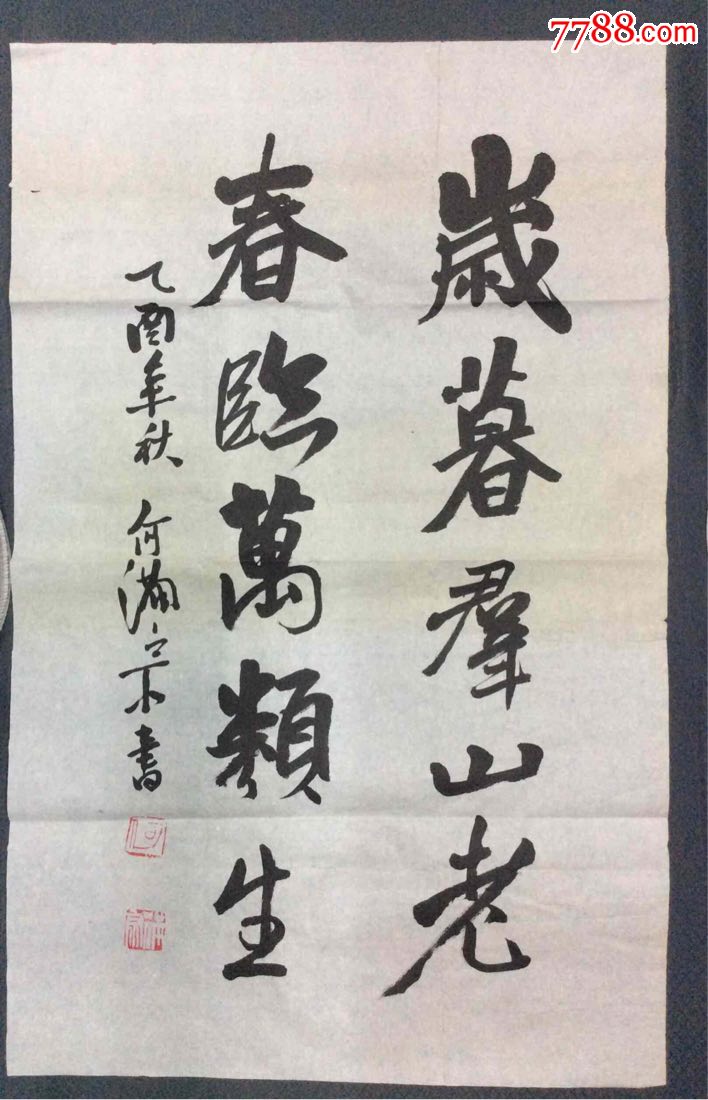 7788.com
歲暮羣山老
春臨萬類生
乙酉年秋 何滿宗書